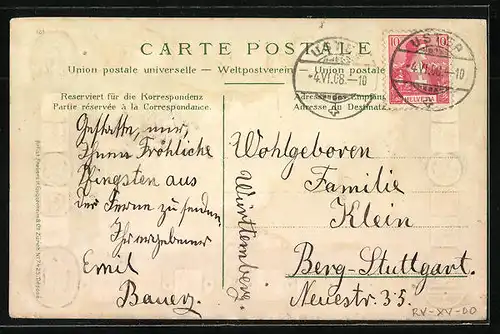 CARTE POSTALE
Union postale universelle. — Weltpostverein. Union postale
Reserviert für die Korrespondenz
Partie réservée à la Correspondance.
Adresse des Empfäng
Adresse du Destinat
USTER
4.VI.08.–10
USTER
4.VI.08.–10
10
10
HELVETIA
Gestatte, mir,
Ihnen Fröhliche
Pfingsten aus
der Ferne zu senden.
Ihr ergebener
Emil
Bauer.
Wohlgeboren
Familie
Klein
Berg-Stuttgart.
Neuestr. 35.
Württemberg.
RV-XV-00